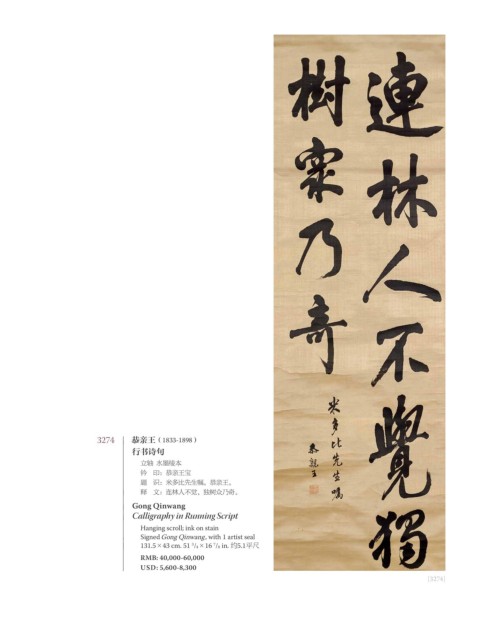 連林人不覺獨
樹衆乃奇
米多比先生囑
恭親王
3274
恭亲王(1833-1898)
行书诗句
立轴 水墨绫本
钤 印:恭亲王宝
题 识:米多比先生嘱。恭亲王。
释 文:连林人不觉,独树众乃奇。
Gong Qinwang
Calligraphy in Running Script
Hanging scroll; ink on stain
Signed Gong Qinwang, with 1 artist seal
131.5 × 43 cm. 51 ³/₄ × 16 ⁷/₈ in. 约5.1平尺
RMB: 40,000-60,000
USD: 5,600-8,300
[3274]